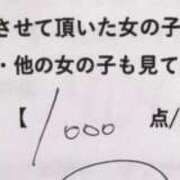 させて頂いた女の子
・他の女の子も見て
【 1000 点/